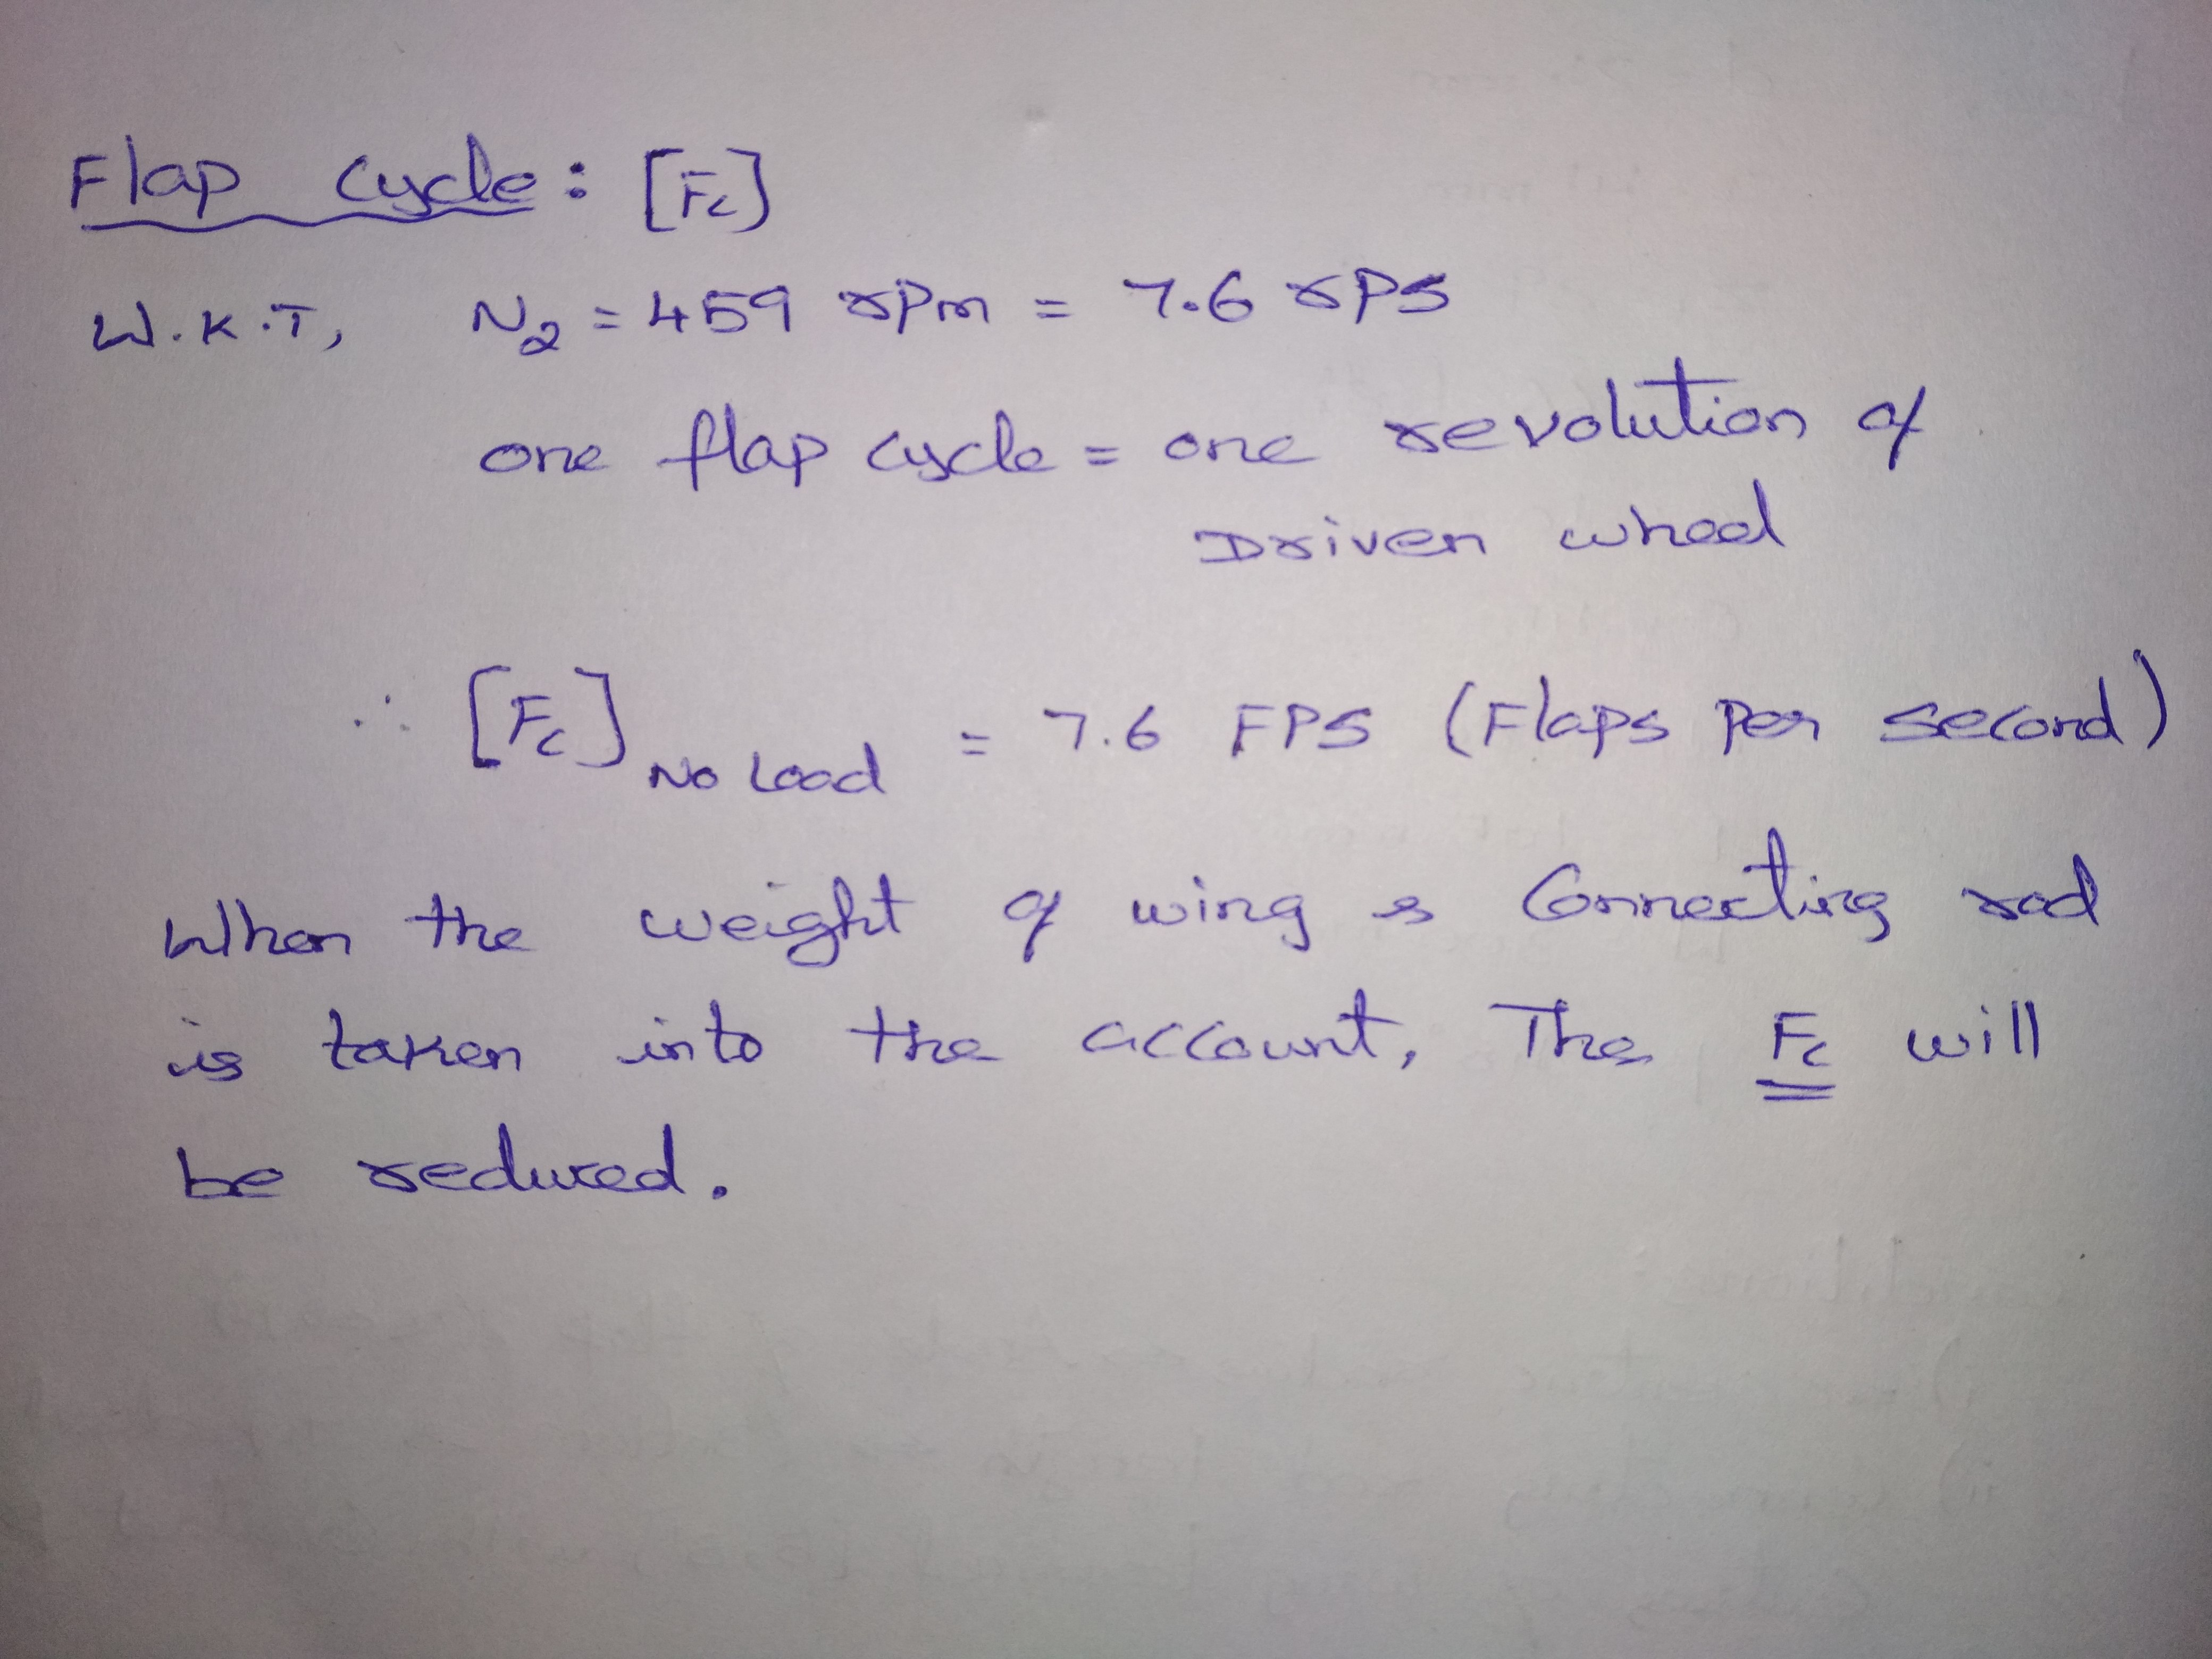 Flap cycle: [Fc]
W.K.T, N2 = 459 rpm = 7.6 rps
one flap cycle = one revolution of
Driven wheel
∴ [Fc] No Load = 7.6 FPS (Flaps Per second)
When the weight of wing & Connecting rod
is taken into the account, The Fc will
be reduced.